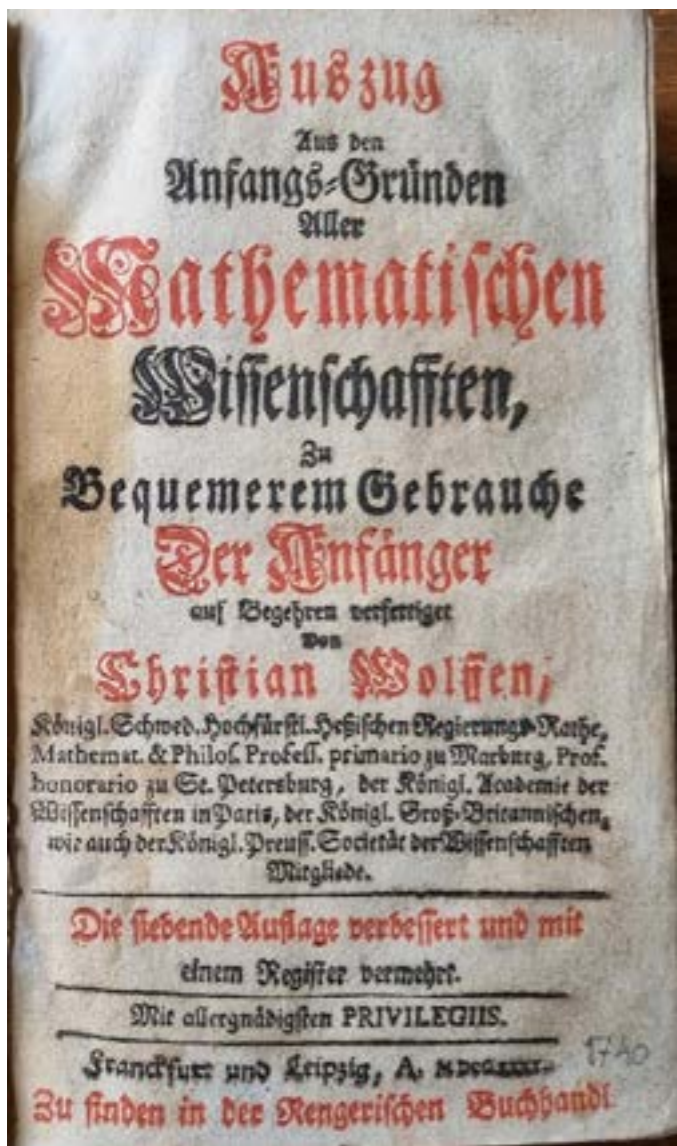 Auszug
Aus den
Anfangs-Gründen
Aller
Mathematischen
Wissenschafften,
Zu
Bequemerem Gebrauche
Der Anfänger
auf Begehren verfertiget
von
Christian Wolffen,
Königl. Schwed. Hochfürstl. Heßischen Regierungs-Rathe,
Mathemat. & Philos. Profess. primario zu Marburg, Prof.
honorario zu St. Petersburg, der Königl. Academie der
Wissenschafften in Paris, der Königl. Groß-Britannischen,
wie auch der Königl. Preuss. Societät der Wissenschafften
Mitgliede.
Die siebende Auflage verbessert und mit
einem Register vermehrt.
Mit allergnädigsten PRIVILEGIIS.
Franckfurt und Leipzig, A.
1740
Zu finden in der Rengerischen Buchhandl